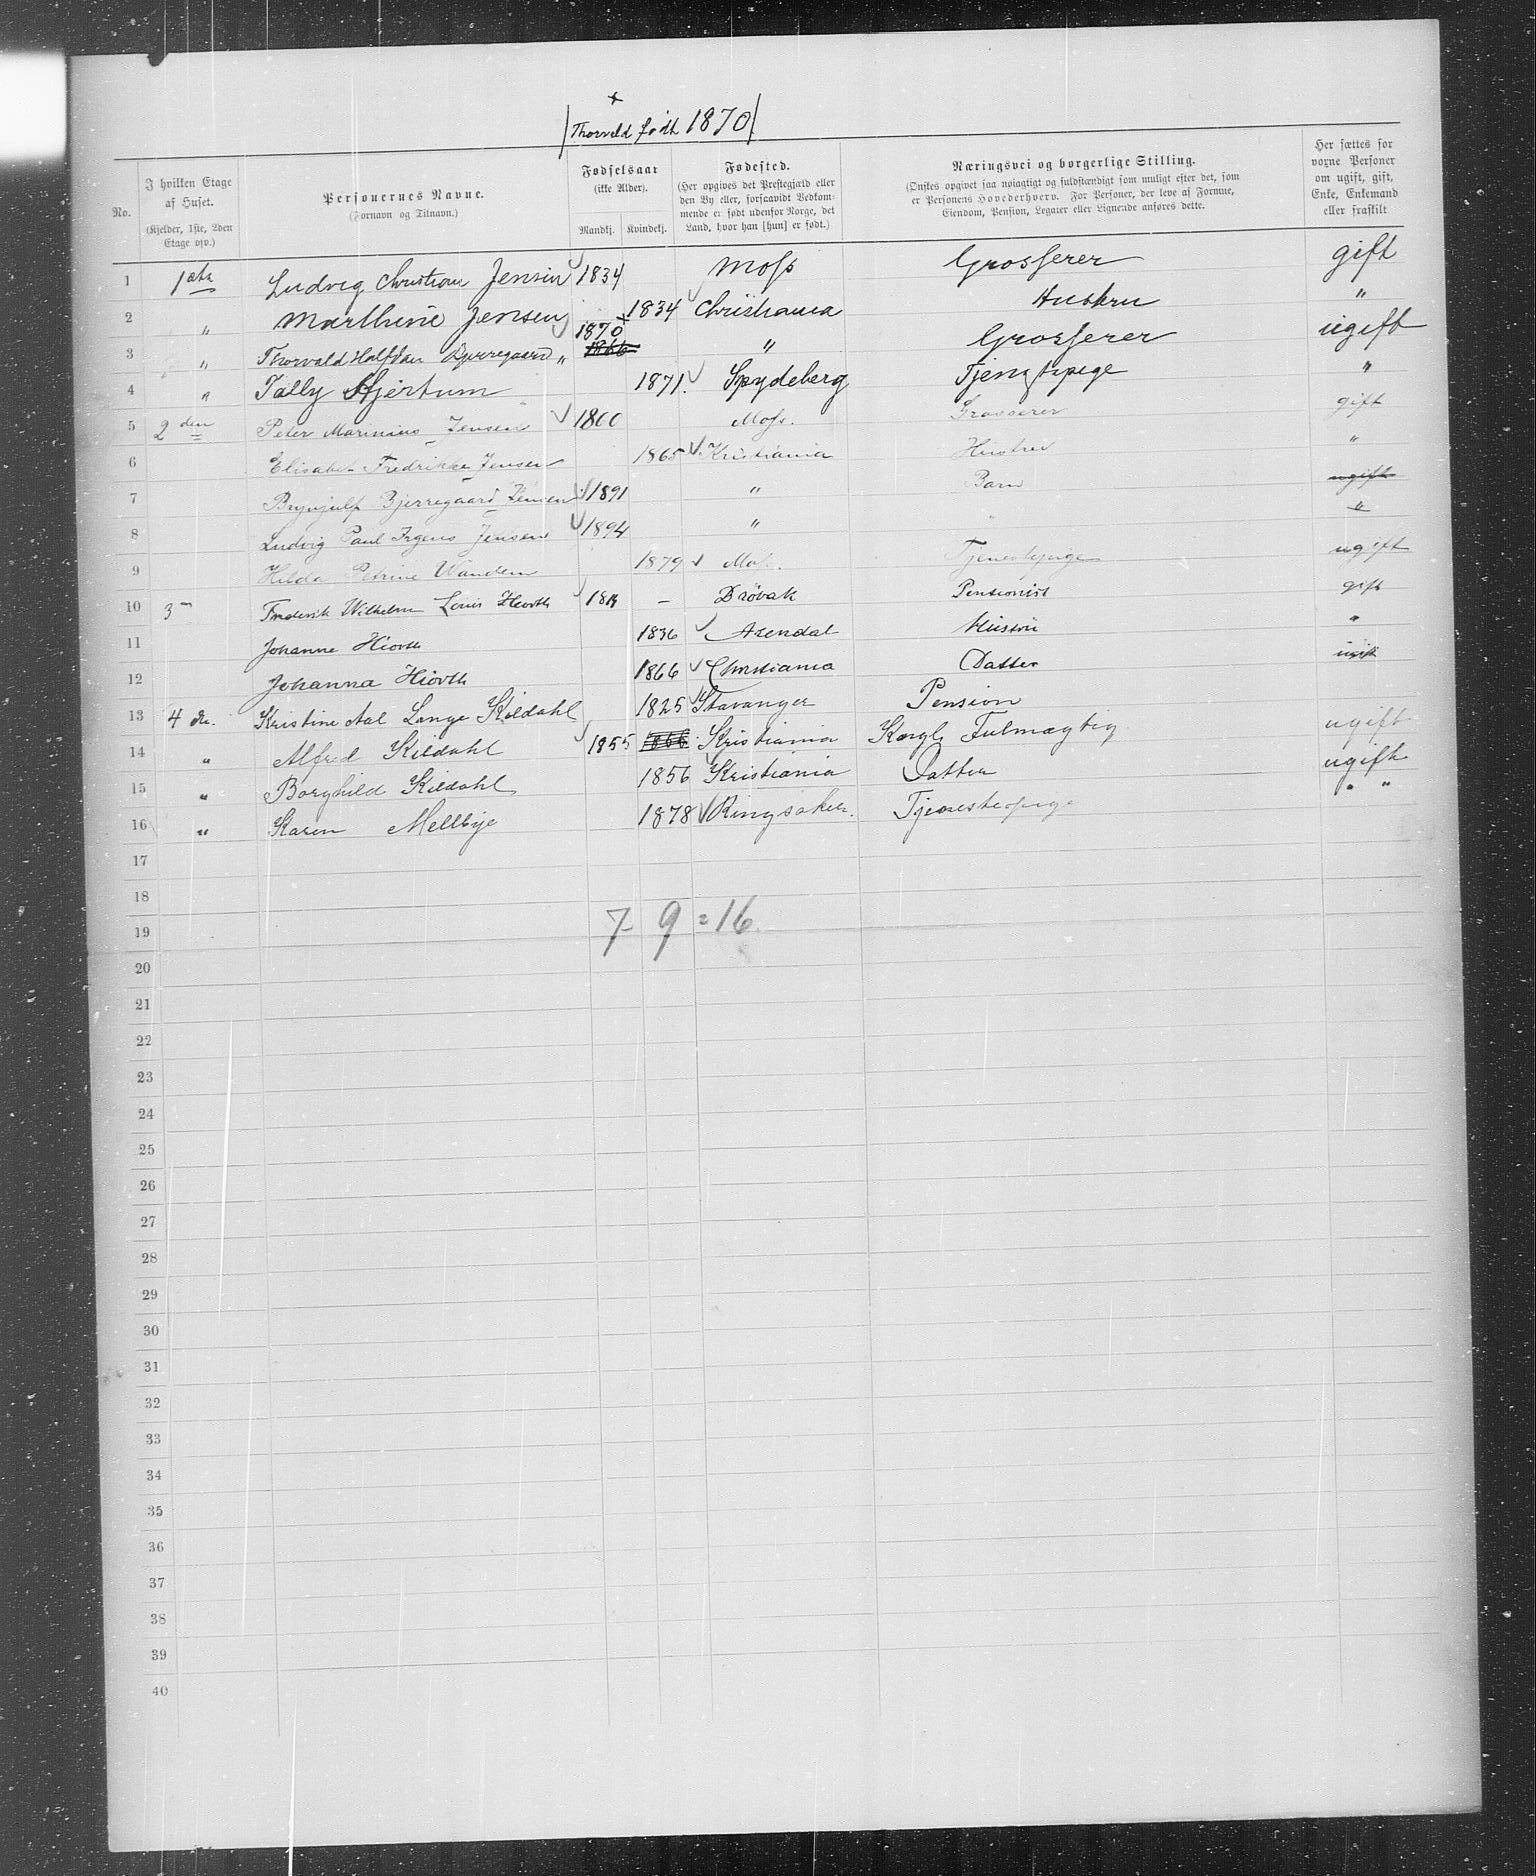 Thorvald født 1870
No.
I hvilken Etage af Huset.
(Kjelder, 1ste, 2den Etage osv.)
Personernes Navne.
(Fornavn og Tilnavn.)
Fødselsaar
(ikke Alder).
Mandkj. Kvindekj.
Fødested.
(Her opgives det Prestegjæld eller den By eller, forsaavidt Vedkommende er født udenfor Norge, det Land, hvor han [hun] er født.)
Næringsvei og borgerlige Stilling.
(Ønskes opgivet saa nøiagtigt og fuldstændigt som muligt efter det, som er Personens Hovederhverv. For Personer, der leve af Formue, Eiendom, Pension, Legater eller Lignende anføres dette.
Her sættes for voxne Personer om ugift, gift, Enke, Enkemand eller fraskilt
1 1ste Ludvig Christian Jensen 1834 Moss Grosserer gift
2 " Marthine Jensen 1834 Christiania Hustru "
3 " Thorvald Halfdan Bjerregaard " 1870 1866 " Grosserer ugift
4 " Tally Hjertum 1871. Spydeberg Tjenestepige "
5 2den Peter Marinius Jensen 1860 Moss. Grosserer gift
6 Elisabet Fredrikke Jensen 1865 Kristiania Hustru "
7 Brynjulf Bjerregaard Jensen 1891 " Barn ugift
8 Ludvig Paul Irgens Jensen 1894 " " "
9 Hilda Petrine Wandem 1879 Moss. Tjenestepige ugift
10 3 Frederik Wilhelm Louis Hiorth 18 – Drøbak Pensionist gift
11 Johanne Hiorth 1836 Arendal Hustru "
12 Johanna Hiorth 1866 Christiania Datter ugift
13 4de. Kristine Aal Lange Kildahl 1825 Stavanger Pension
14 " Alfred Kildahl 1855 Kristiania Kongl. Fulmægtig ugift
15 " Borghild Kildahl 1856 Kristiania Datter ugift
16 " Karen Mellbye 1878 Ringsaker. Tjenestepige " "
17
18
19 7 9 = 16.
20
21
22
23
24
25
26
27
28
29
30
31
32
33
34
35
36
37
38
39
40